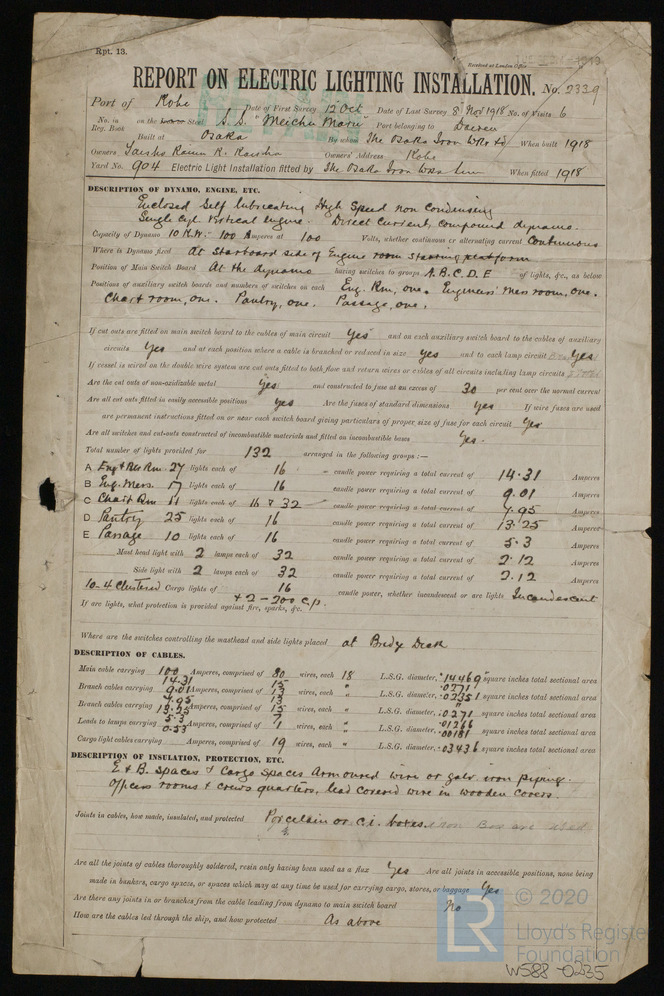 Rpt. 13.
Received at London Office
REPORT ON ELECTRIC LIGHTING INSTALLATION. No. 2339
Port of Kobe Date of First Survey 12 Oct Date of Last Survey 8 Nov 1918 No. of Visits 6
No. in Reg. Book on the Iron Steel S.S. "Meichu Maru" Port belonging to Dairen
Built at Osaka By whom The Osaka Iron Wks Ld When built 1918
Owners Kaisha Owners' Address Kobe
Yard No. 904 Electric Light Installation fitted by The Osaka Iron Wks When fitted 1918
DESCRIPTION OF DYNAMO, ENGINE, ETC.
Enclosed Self lubricating High Speed non Condensing
Single Cyl. Vertical Engine. Direct Current, Compound dynamo.
Capacity of Dynamo 10 K.W. - 100 Amperes at 100 Volts, whether continuous or alternating current Continuous
Where is Dynamo fixed At Starboard side of Engine room starting platform
Position of Main Switch Board At the dynamo having switches to groups A.B.C.D.E of lights, &c., as below
Positions of auxiliary switch boards and numbers of switches on each Eng. Rm, one. Engineers' Mess room, one.
Chart room, one. Pantry, one. Passage, one.
If cut outs are fitted on main switch board to the cables of main circuit Yes and on each auxiliary switch board to the cables of auxiliary
circuits Yes and at each position where a cable is branched or reduced in size Yes and to each lamp circuit Yes
If vessel is wired on the double wire system are cut outs fitted to both flow and return wires or cables of all circuits including lamp circuits
Are the cut outs of non-oxidizable metal Yes and constructed to fuse at an excess of 30 per cent over the normal current
Are all cut outs fitted in easily accessible positions Yes Are the fuses of standard dimensions Yes If wire fuses are used
are permanent instructions fitted on or near each switch board giving particulars of proper size of fuse for each circuit Yes
Are all switches and cut-outs constructed of incombustible materials and fitted on incombustible bases Yes.
Total number of lights provided for 132 arranged in the following groups :—
A Eng & Blr Rm. 27 lights each of 16 candle power requiring a total current of 14.31 Amperes
B Eng. Mess. 17 lights each of 16 candle power requiring a total current of 9.01 Amperes
C Chart Rm 11 lights each of 16 & 32 candle power requiring a total current of 7.95 Amperes
D Pantry 25 lights each of 16 candle power requiring a total current of 13.25 Amperes
E Passage 10 lights each of 16 candle power requiring a total current of 5.3 Amperes
Mast head light with 2 lamps each of 32 candle power requiring a total current of 2.12 Amperes
Side light with 2 lamps each of 32 candle power requiring a total current of 2.12 Amperes
10-4 Clustered Cargo lights of 16 candle power, whether incandescent or arc lights Incandescent
+ 2 - 200 c.p.
If arc lights, what protection is provided against fire, sparks, &c.
Where are the switches controlling the masthead and side lights placed at Bridge Deck
DESCRIPTION OF CABLES.
Main cable carrying 100 Amperes, comprised of 80 wires, each 18 L.S.G. diameter, .14469 square inches total sectional area
14.31 15 .0271
Branch cables carrying 9.01 Amperes, comprised of 13 wires, each " L.S.G. diameter, .02351 square inches total sectional area
7.95 13 "
Branch cables carrying 13.25 Amperes, comprised of 15 wires, each " L.S.G. diameter, .0271 square inches total sectional area
5.3 7 .01266
Leads to lamps carrying 0.53 Amperes, comprised of 1 wires, each " L.S.G. diameter, .00181 square inches total sectional area
Cargo light cables carrying Amperes, comprised of 19 wires, each " L.S.G. diameter, .03436 square inches total sectional area
DESCRIPTION OF INSULATION, PROTECTION, ETC.
E & B. Spaces & Cargo Spaces Armoured wire or galv. iron piping.
Officers rooms & crews quarters, lead covered wire in wooden covers.
Joints in cables, how made, insulated, and protected Porcelain or C.I. boxes. Iron Box are used
Are all the joints of cables thoroughly soldered, resin only having been used as a flux Yes Are all joints in accessible positions, none being
made in bunkers, cargo spaces, or spaces which may at any time be used for carrying cargo, stores, or baggage Yes
Are there any joints in or branches from the cable leading from dynamo to main switch board No
How are the cables led through the ship, and how protected As above
© 2020
LR
Lloyd's Register
Foundation
W588-0235